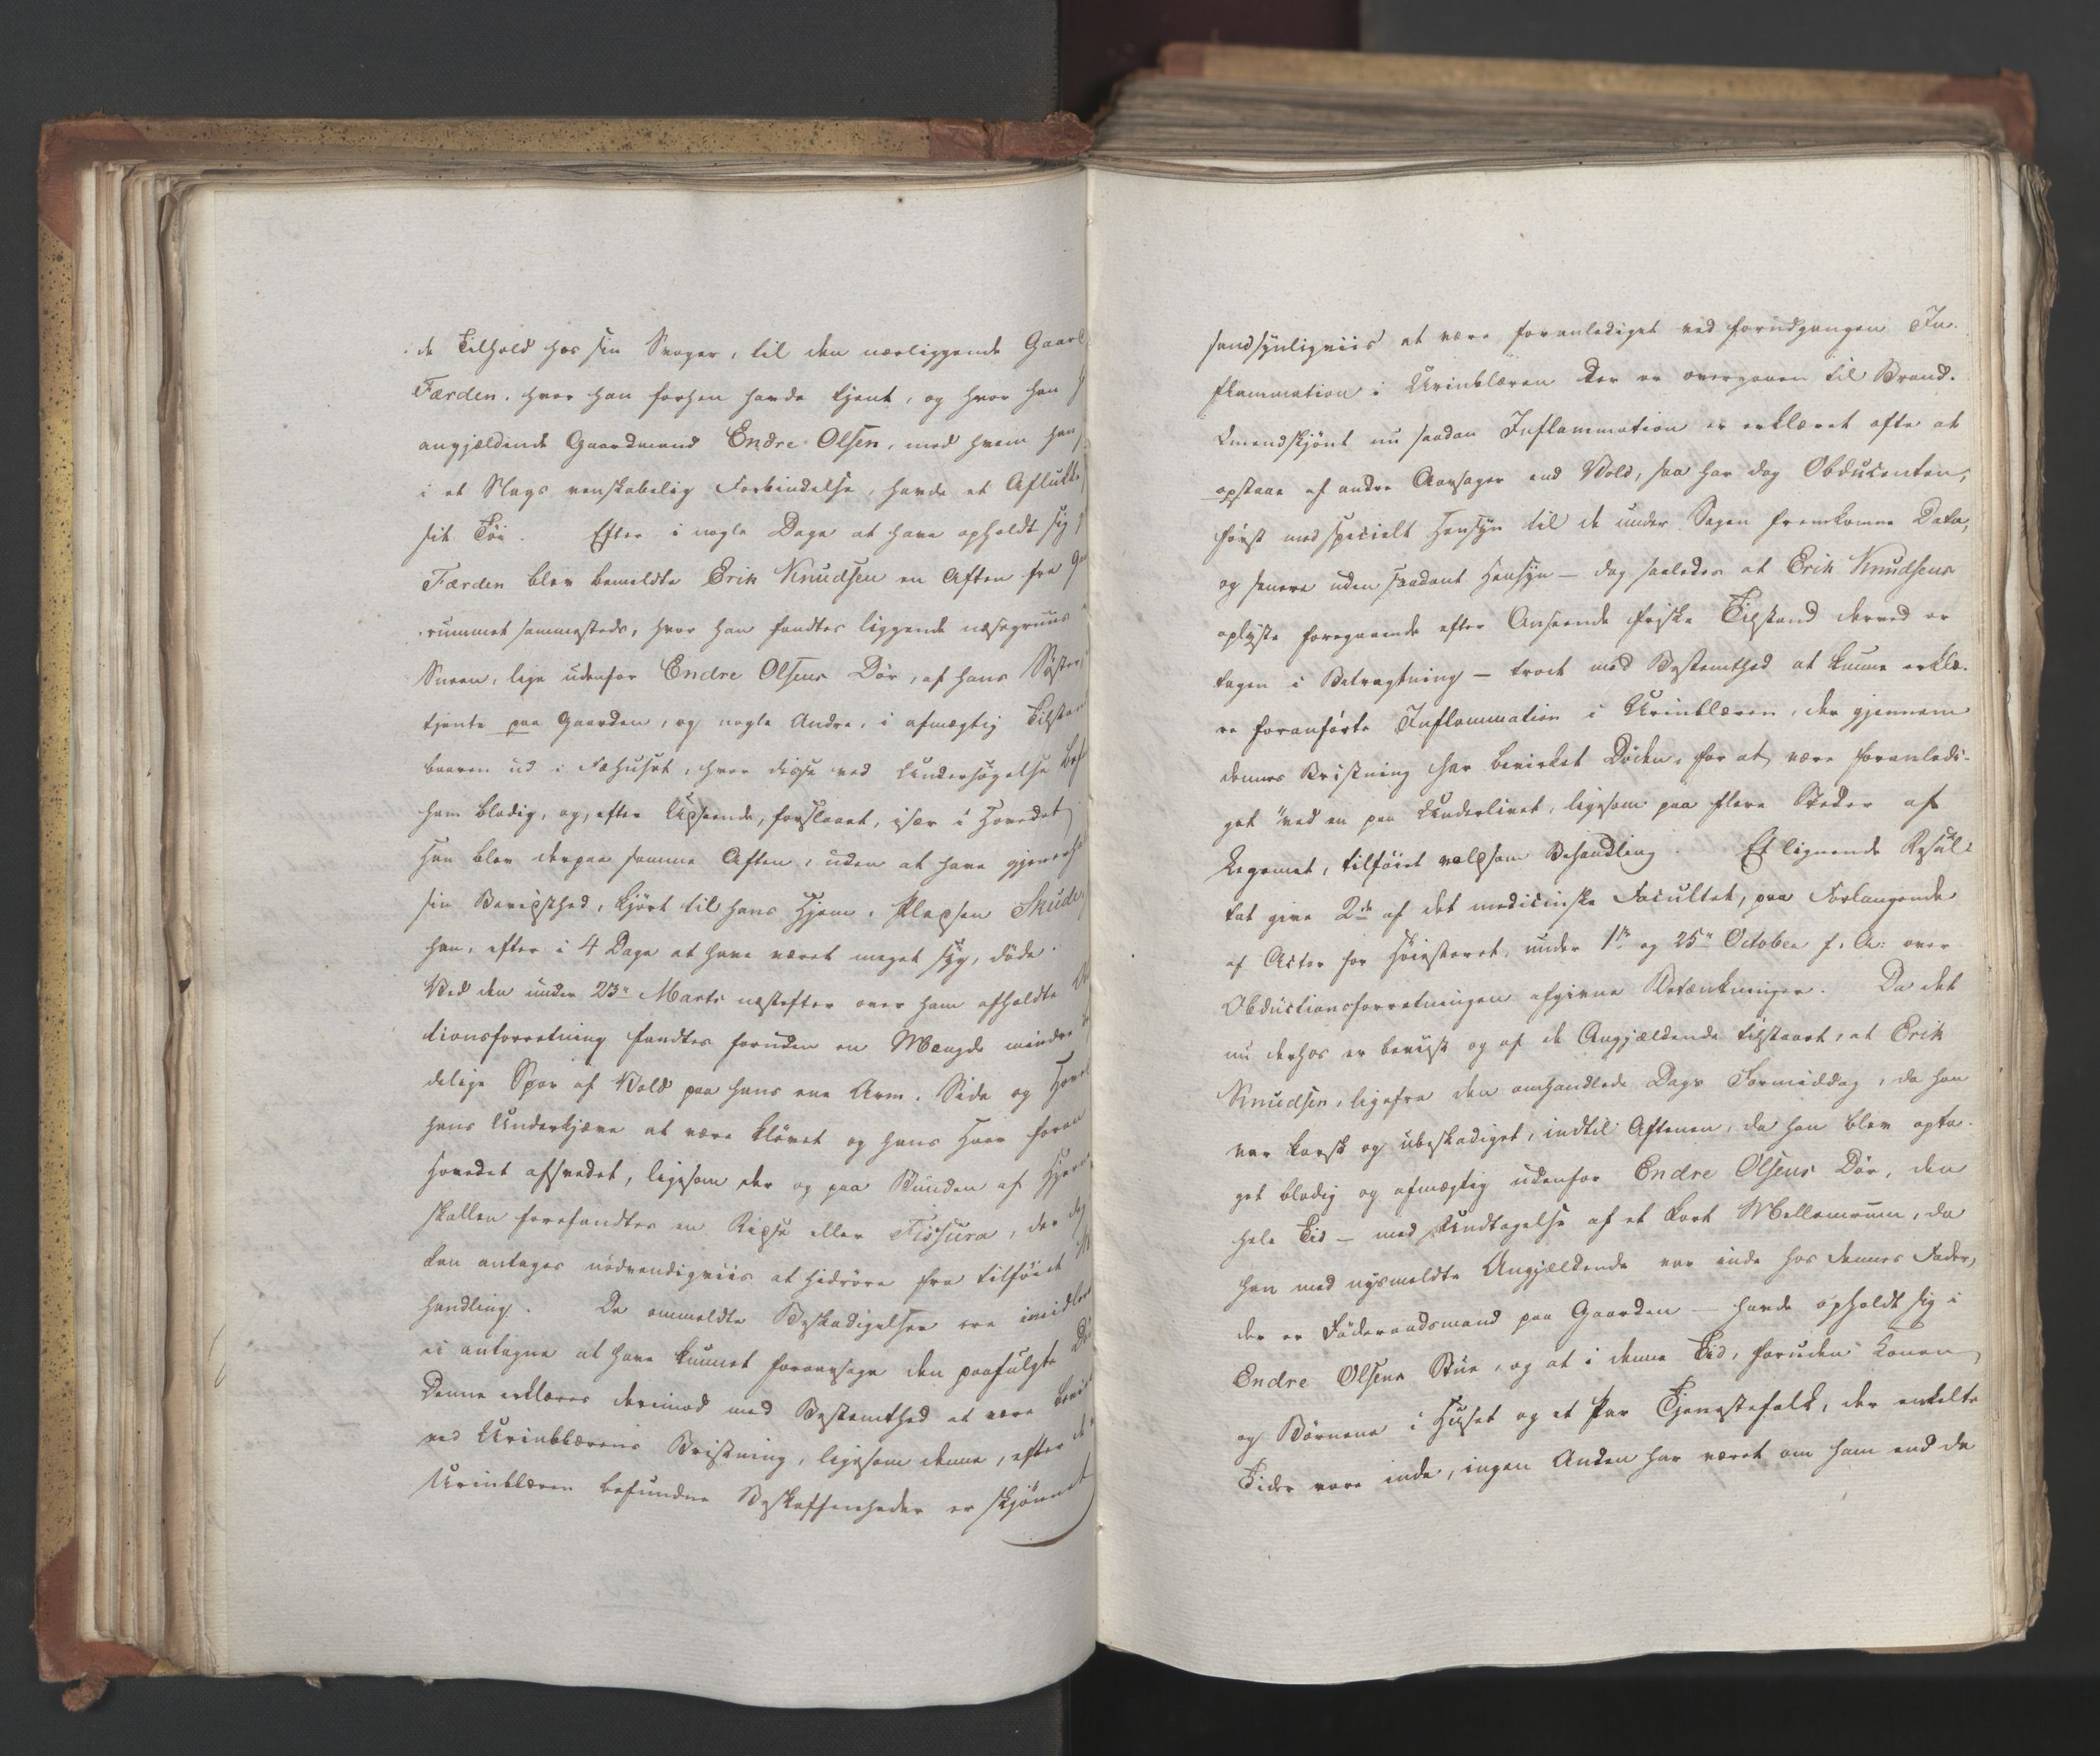 de Tilhold hos sin Svoger, til den nærliggende Gaard
Færden, hvor han forhen havde tjent, og hvor han
angjældende Gaardmand Endre Olsen, med hvem han
i et Slags venskabelig Forbindelse, havde et Aflukke
sit Töi. Efter i nogle Dage at have opholdt sig
Færden blev bemeldte Erik Knudsen en Aften fra
rummet sammesteds, hvor han fandtes liggende næsegruus
Sneen, lige udenfor Endre Olsens Dör, af hans Söster,
tjente paa Gaarden, og nogle Andre, i afmægtig Tilstand
baaren ud i Fæhuset, hvor disse ved Undersögelse
ham blodig, og, efter Udseende, forslaaet, især i Hovedet
Han blev derpaa samme Aften, uden at have
sin Bevidsthed, kjört til hans Hjem, Pladsen
han, efter i 4 Dage at have været meget syg, döde.
Ved den under 23de Marts næstefter over ham afholdte
tionsforretning fandtes foruden en Mængde mindre
delige Spor af Vold paa hans ene Arm, Side og
hans Underkjæve at være klövet og hans Haar foran
Hovedet afsvedet, ligesom der og paa Bunden af
skallen forefandtes en Ridse eller Fissura, der
kan antages nödvendigviis at hidröre fra tilföiet
handling. De ommeldte Beskadigelser ere imidlertid
ei antagne at have kunnet foraarsage den paafulgte
Denne erklæres derimod med Bestemthed at være
ved Urinblærens Bristning, ligesom denne, efter
Urinblæren befundne Beskaffenheder er skjönnet
sandsynligviis at være foranlediget ved forudgangen In-
flammation i Urinblæren der er overgaaen til Brand.
Omendskjönt nu saadan Inflammation er erklæret ofte at
opstaae af andre Aarsager end Vold, saa har dog Obducenten,
först med specielt Hensyn til de under Sagen fremkomne Data,
og senere uden saadant Hensyn – dog saaledes at Erik Knudsens
oplyste foregaaende efter Anseende friske Tilstand derved er
tagen i Betragtning – troet med Bestemthed at kunne erklæ-
re foranförte Inflammation i Urinblæren, der gjennem
dennes Bristning har bevirket Döden, for at være foranledi-
get "ved en paa Underlivet, ligesom paa flere Steder af
Legemet, tilföiet voldsom Behandling. Et lignende Resul-
tat give 2de af det medicinske Facultet, paa Forlangende
af Actor for Höiesteret, under 1ste og 25de October f. A: over
Obductionsforretningen afgivne Betænkninger. Da det
nu derhos er beviist og af de Angjældende tilstaaet, at Erik
Knudsen, ligefra den omhandlede Dags Formiddag, da han
var karsk og ubeskadiget, indtil Aftenen, da han blev opta-
get blodig og afmægtig udenfor Endre Olsens Dör, den
hele Tid – med Undtagelse af et kort Mellemrum, da
han med nysmeldte Angjældende var inde hos dennes Fader,
der er Föderaadsmand paa Gaarden – havde opholdt sig i
Endre Olsens Stue, og at i denne Tid, foruden Konen
og Börnene i Huset og et Par Tjenestefolk, der enkelte
Tider vare inde, ingen Anden har været om ham end de